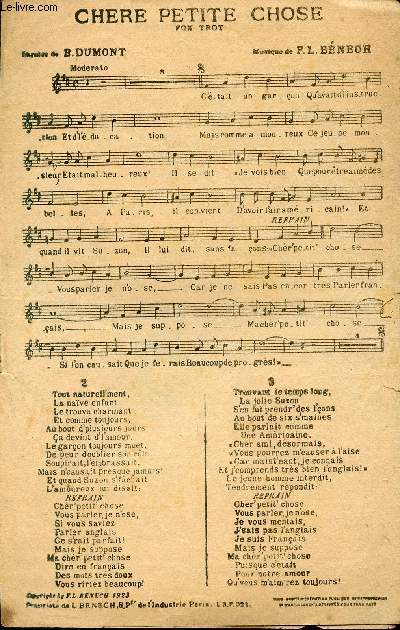 CHERE PETITE CHOSE
FOX TROT
Paroles de B. DUMONT Musique de F. L. BÉNECH
Moderato
C'é_tait un gar_çon Qu'avait d'l'ins_truc_
_tion Et d'l'é_du_ca_tion Mais comme a_mou_reux Ce jeu_ne mon_
_sieur Etait mal_heu_reux Il se dit «Je vois bien Que pour être aimé des
bel_les, A Pa_ris, il con_vient D'avoir l'air a_mé_ri_cain!» Et
REFRAIN
quand il vit Su_zon, Il lui dit, sans fa_çons: «Chèr' pe_tit' cho_se
Vous parler je n'o_se, Car je ne sais Pas en_cor très Parler fran_
çais, Mais je sup_po_se Ma chèr' pe_tit' cho_se
Si l'on cau_sait Que je fe_rais Beaucoup de pro_grès!»
2
Tout naturell'ment,
La naïve enfant
Le trouva charmant
Et comme toujours,
Au bout d'plusieurs jours
Ça devint d'l'amour.
Le garçon toujours muet,
De peur d'oublier son rôle
Soupirait, l'embrassait,
Mais n'causait presque jamais
Et quand Suzon s'fâchait
L'amoureux lui disait:
REFRAIN
Cher' petit' chose
Vous parler, je n'ose,
Si vous saviez
Parler anglais
Ce s'rait parfait!
Mais je suppose
Ma cher' petit' chose
Dire en français
Des mots très doux
Vous ririez beaucoup!
3
Trouvant le temps long,
La jolie Suzon
S'en fut prendr' des l'çons
Au bout de six s'maines
Elle parlait comme
Une Américaine.
«Cher ami, désormais,
«Vous pourrez m'causer à l'aise
«Car maint'nant, je connais
Et j'comprends très bien l'anglais!»
Le jeune homme interdit,
Tendrement répondit:
REFRAIN
Cher' petit' chose
Vous parler, je n'ose,
Je vous mentais,
J'sais pas l'anglais
Je suis Français
Mais je suppose
Ma cher' petit' chose
Puisque c'était
Pour notre amour
Qu'vous m'aim'rez toujours!
Copyright by F.L. BENECH 1923
Propriété de L. BENECH, Ed.